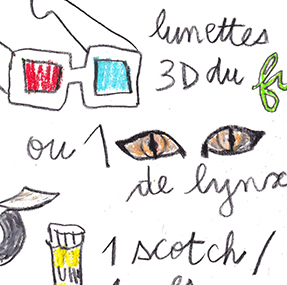 lunettes
3D du
ou 1
de lynx
1 scotch /